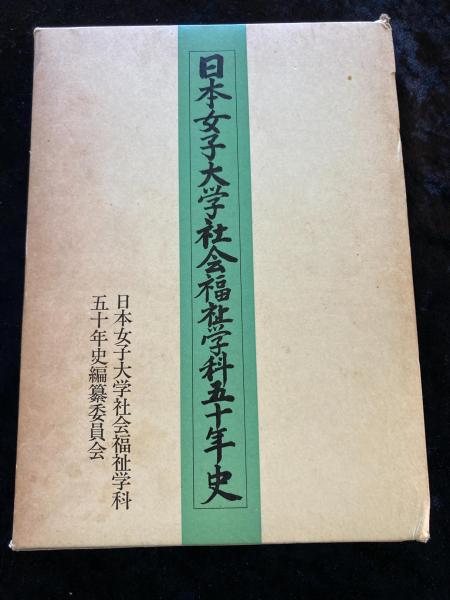 日本女子大学社会福祉学科五十年史
日本女子大学社会福祉学科
五十年史編纂委員会